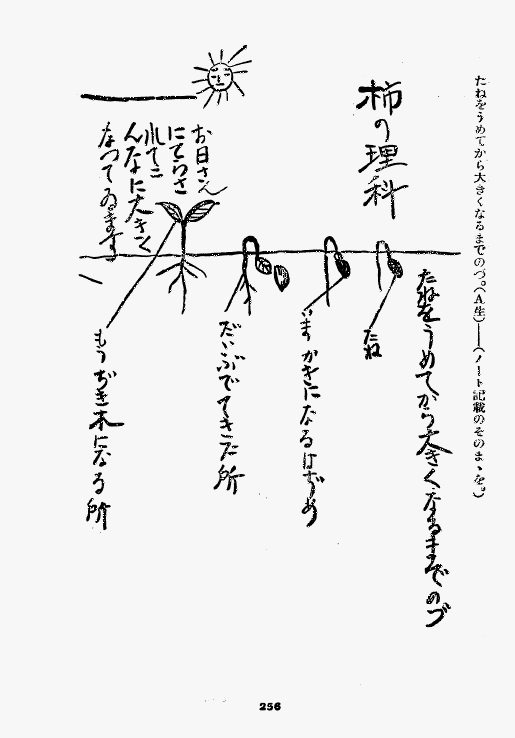 たねをうめてから大きくなるまでのづ。(A生)――(ノート記載のそのまゝを。)
柿の理科
たねをうめてから大きくなるまでのづ
たね
いまかきになるはぢめ
だいぶでてきた所
お日さん
にてらさ
れてこ
んなに大きく
なつてゐます
もうぢき木になる所
256